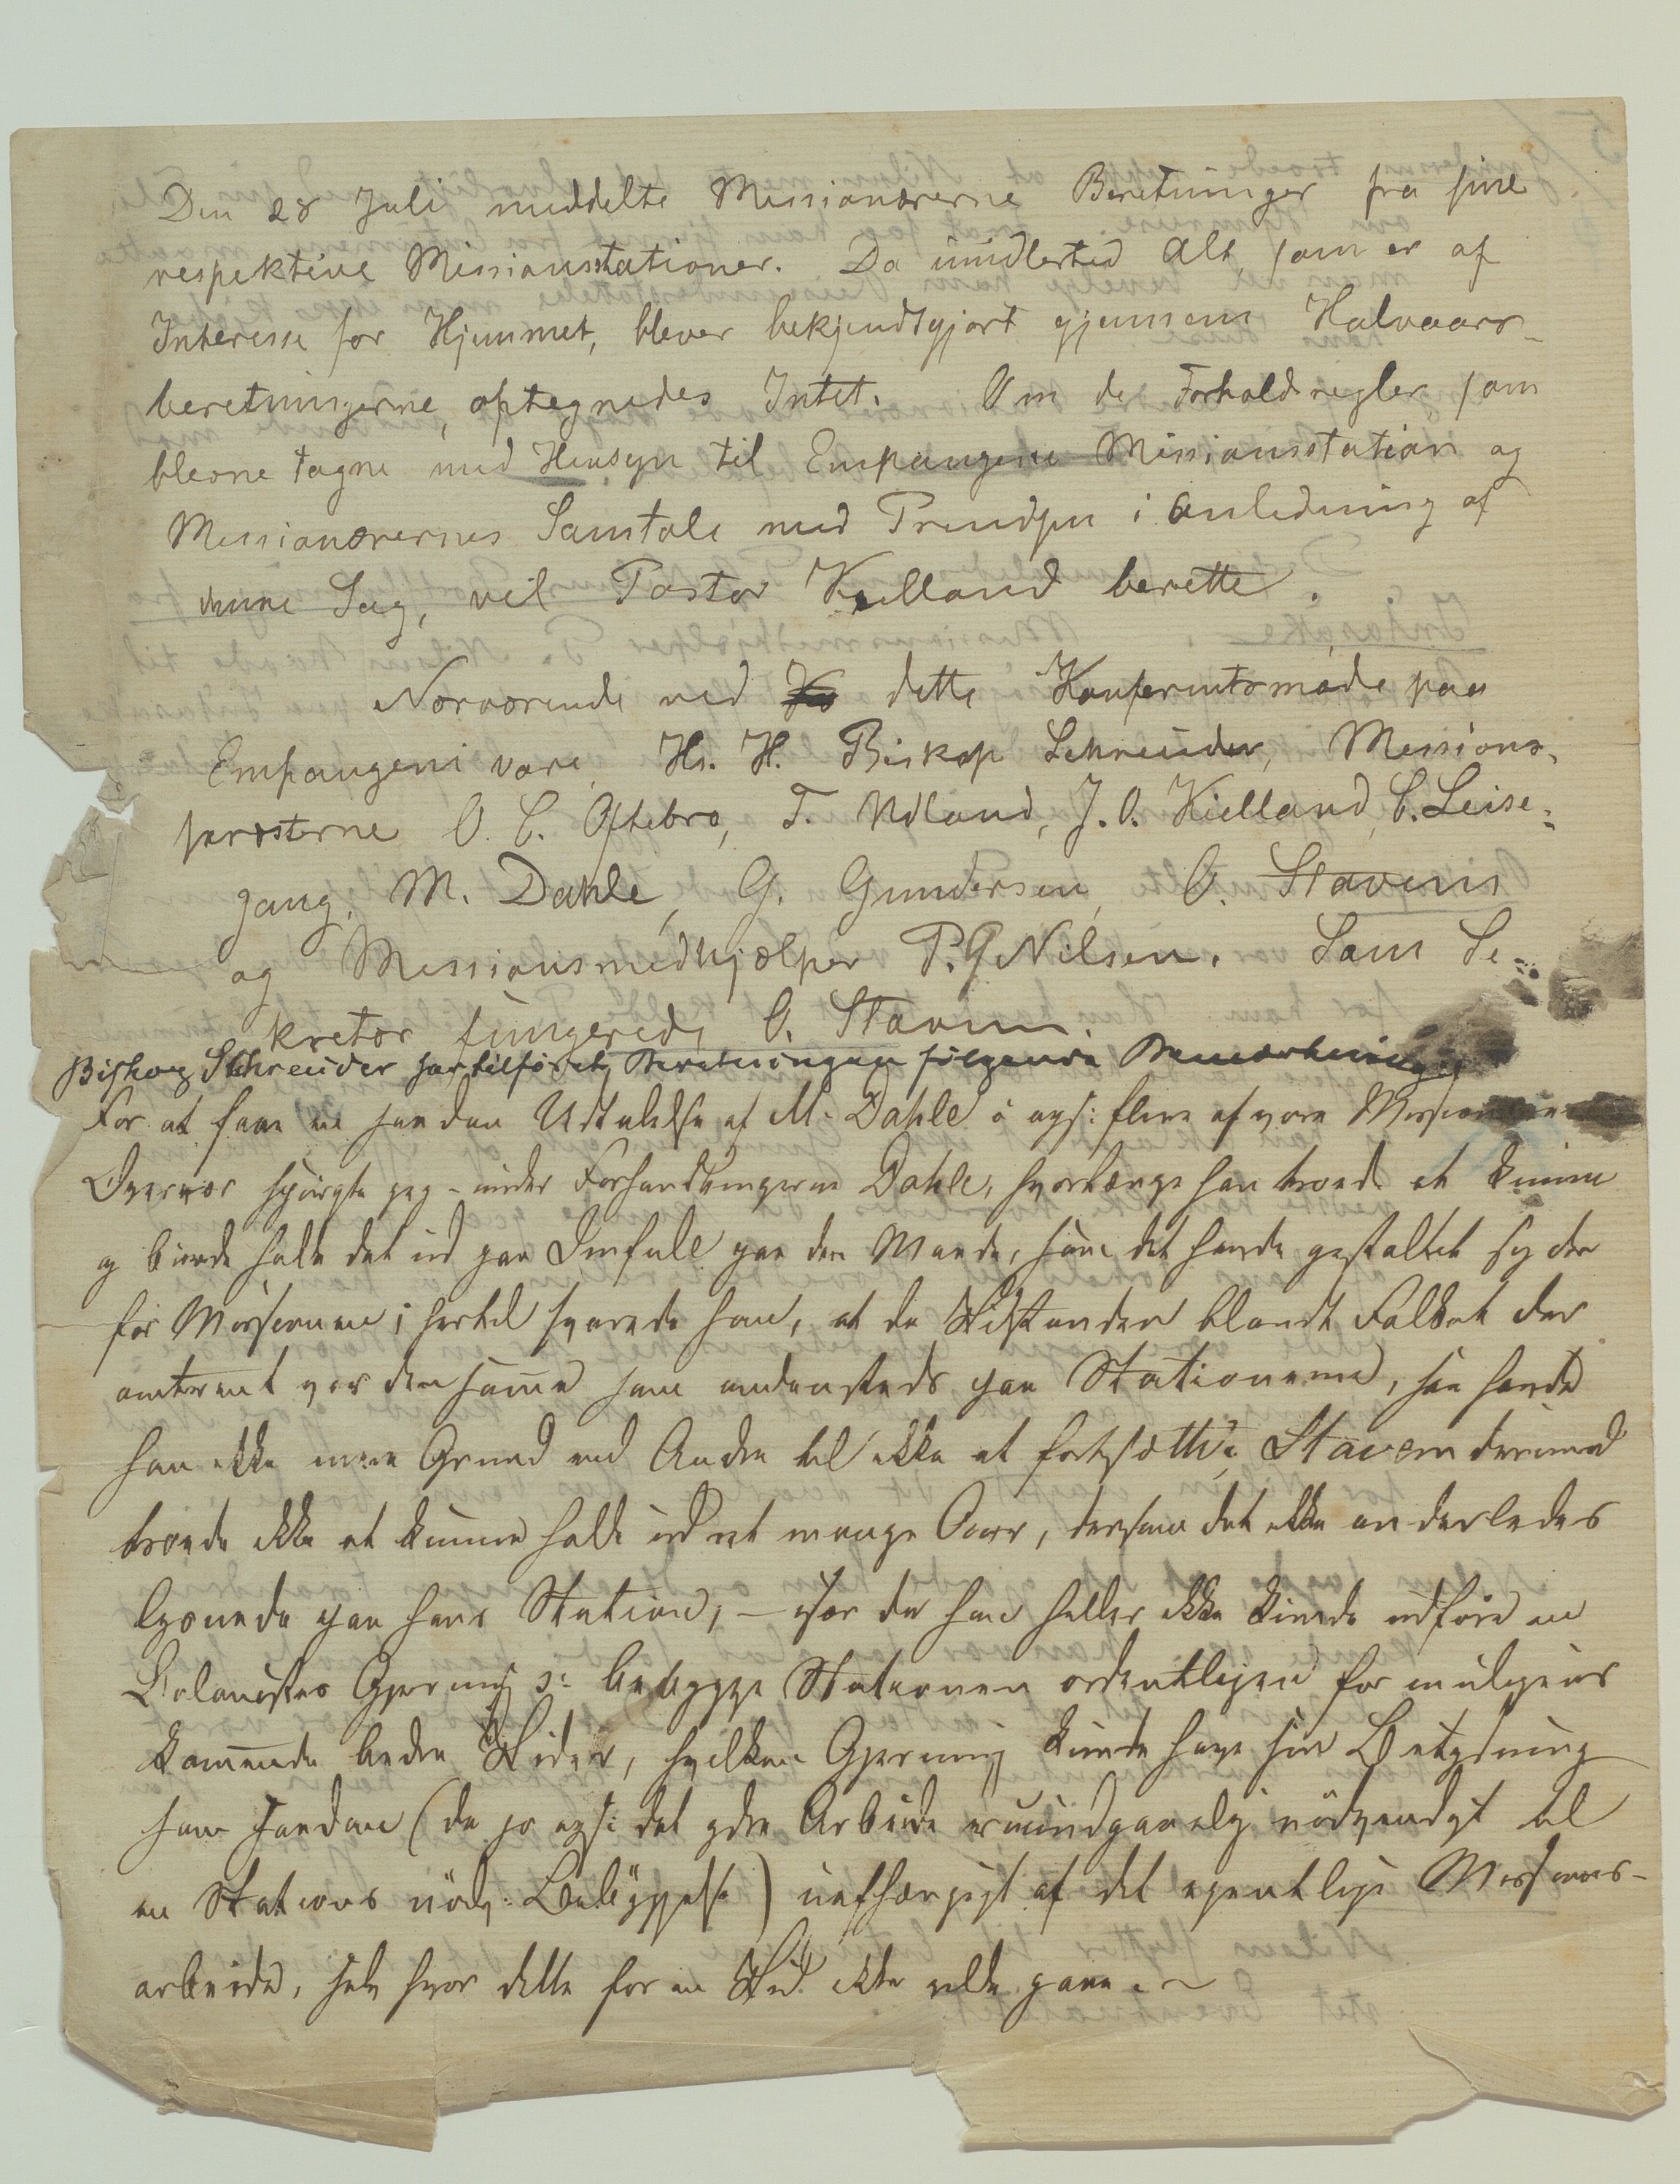 Den 28 Juli meddelte Missionærerne Beretninger fra sine
respektive Missionsstationer. Da imidlertid Alt, som er af
Interesse for Hjemmet, blever bekjendtgjort gjennem Halvaars-
beretningerne, optegnedes Intet. Om de Forholdsregler, som
bleve tagne med Hensyn til Empangeni Missionsstation og
Missionærernes Samtale med Prindsen i Anledning af
denne Sag, vil Pastor Kielland berette.
Nærværende ved dette Konferentsmøde paa
Empangeni vare Hs. H. Biskop Schreuder, Missions-
præsterne O. C. Oftebro, T. Udland, J. O. Kielland, C. Leise-
gang, M. Dahle, G. Gundersen, O. Stavem
og Missionsmedhjælper P. G Nilsen. Som Se-
kretær fungerede O. Stavem.
Biskop Schreuder har tilføiet Beretningen følgende Bemærkninger
For at faae en saadan Udtalelse af M. Dahle o ogs: flere af vore
spurgte jeg under Forhandlingerne Dahle, hvorlænge han troede at kunne
og burde holde det ud paa Imfule paa den Maade, som det havde gestaltet sig der
for Missionen; hertil svarede han, at da Tilstanden blandt Folket der
omtrent var den samme som andensteds paa Stationerne, saa havde
han ikke mere Grund end Andre til ikke at fortsætte; Stavem derimod
troede ikke at kunne holde ud ret mange Aar, dersom det ikke anderledes
paa hans Station, – især da han heller ikke kunde udføre en
Gjerning ɔ: bebygge Stationen ordentligen for muligens
kommende bedre Tider, hvilken Gjerning kunde have sin Betydning
som saadan (da jo ogs: det ydre Arbeide er uundgaaelig nødvendigt til
en Stations nødv: Bebyggelse) uafhængigt af det egentlige Missions-
arbeide, selv hvor dette for en Tid ikke vilde gaae. ~